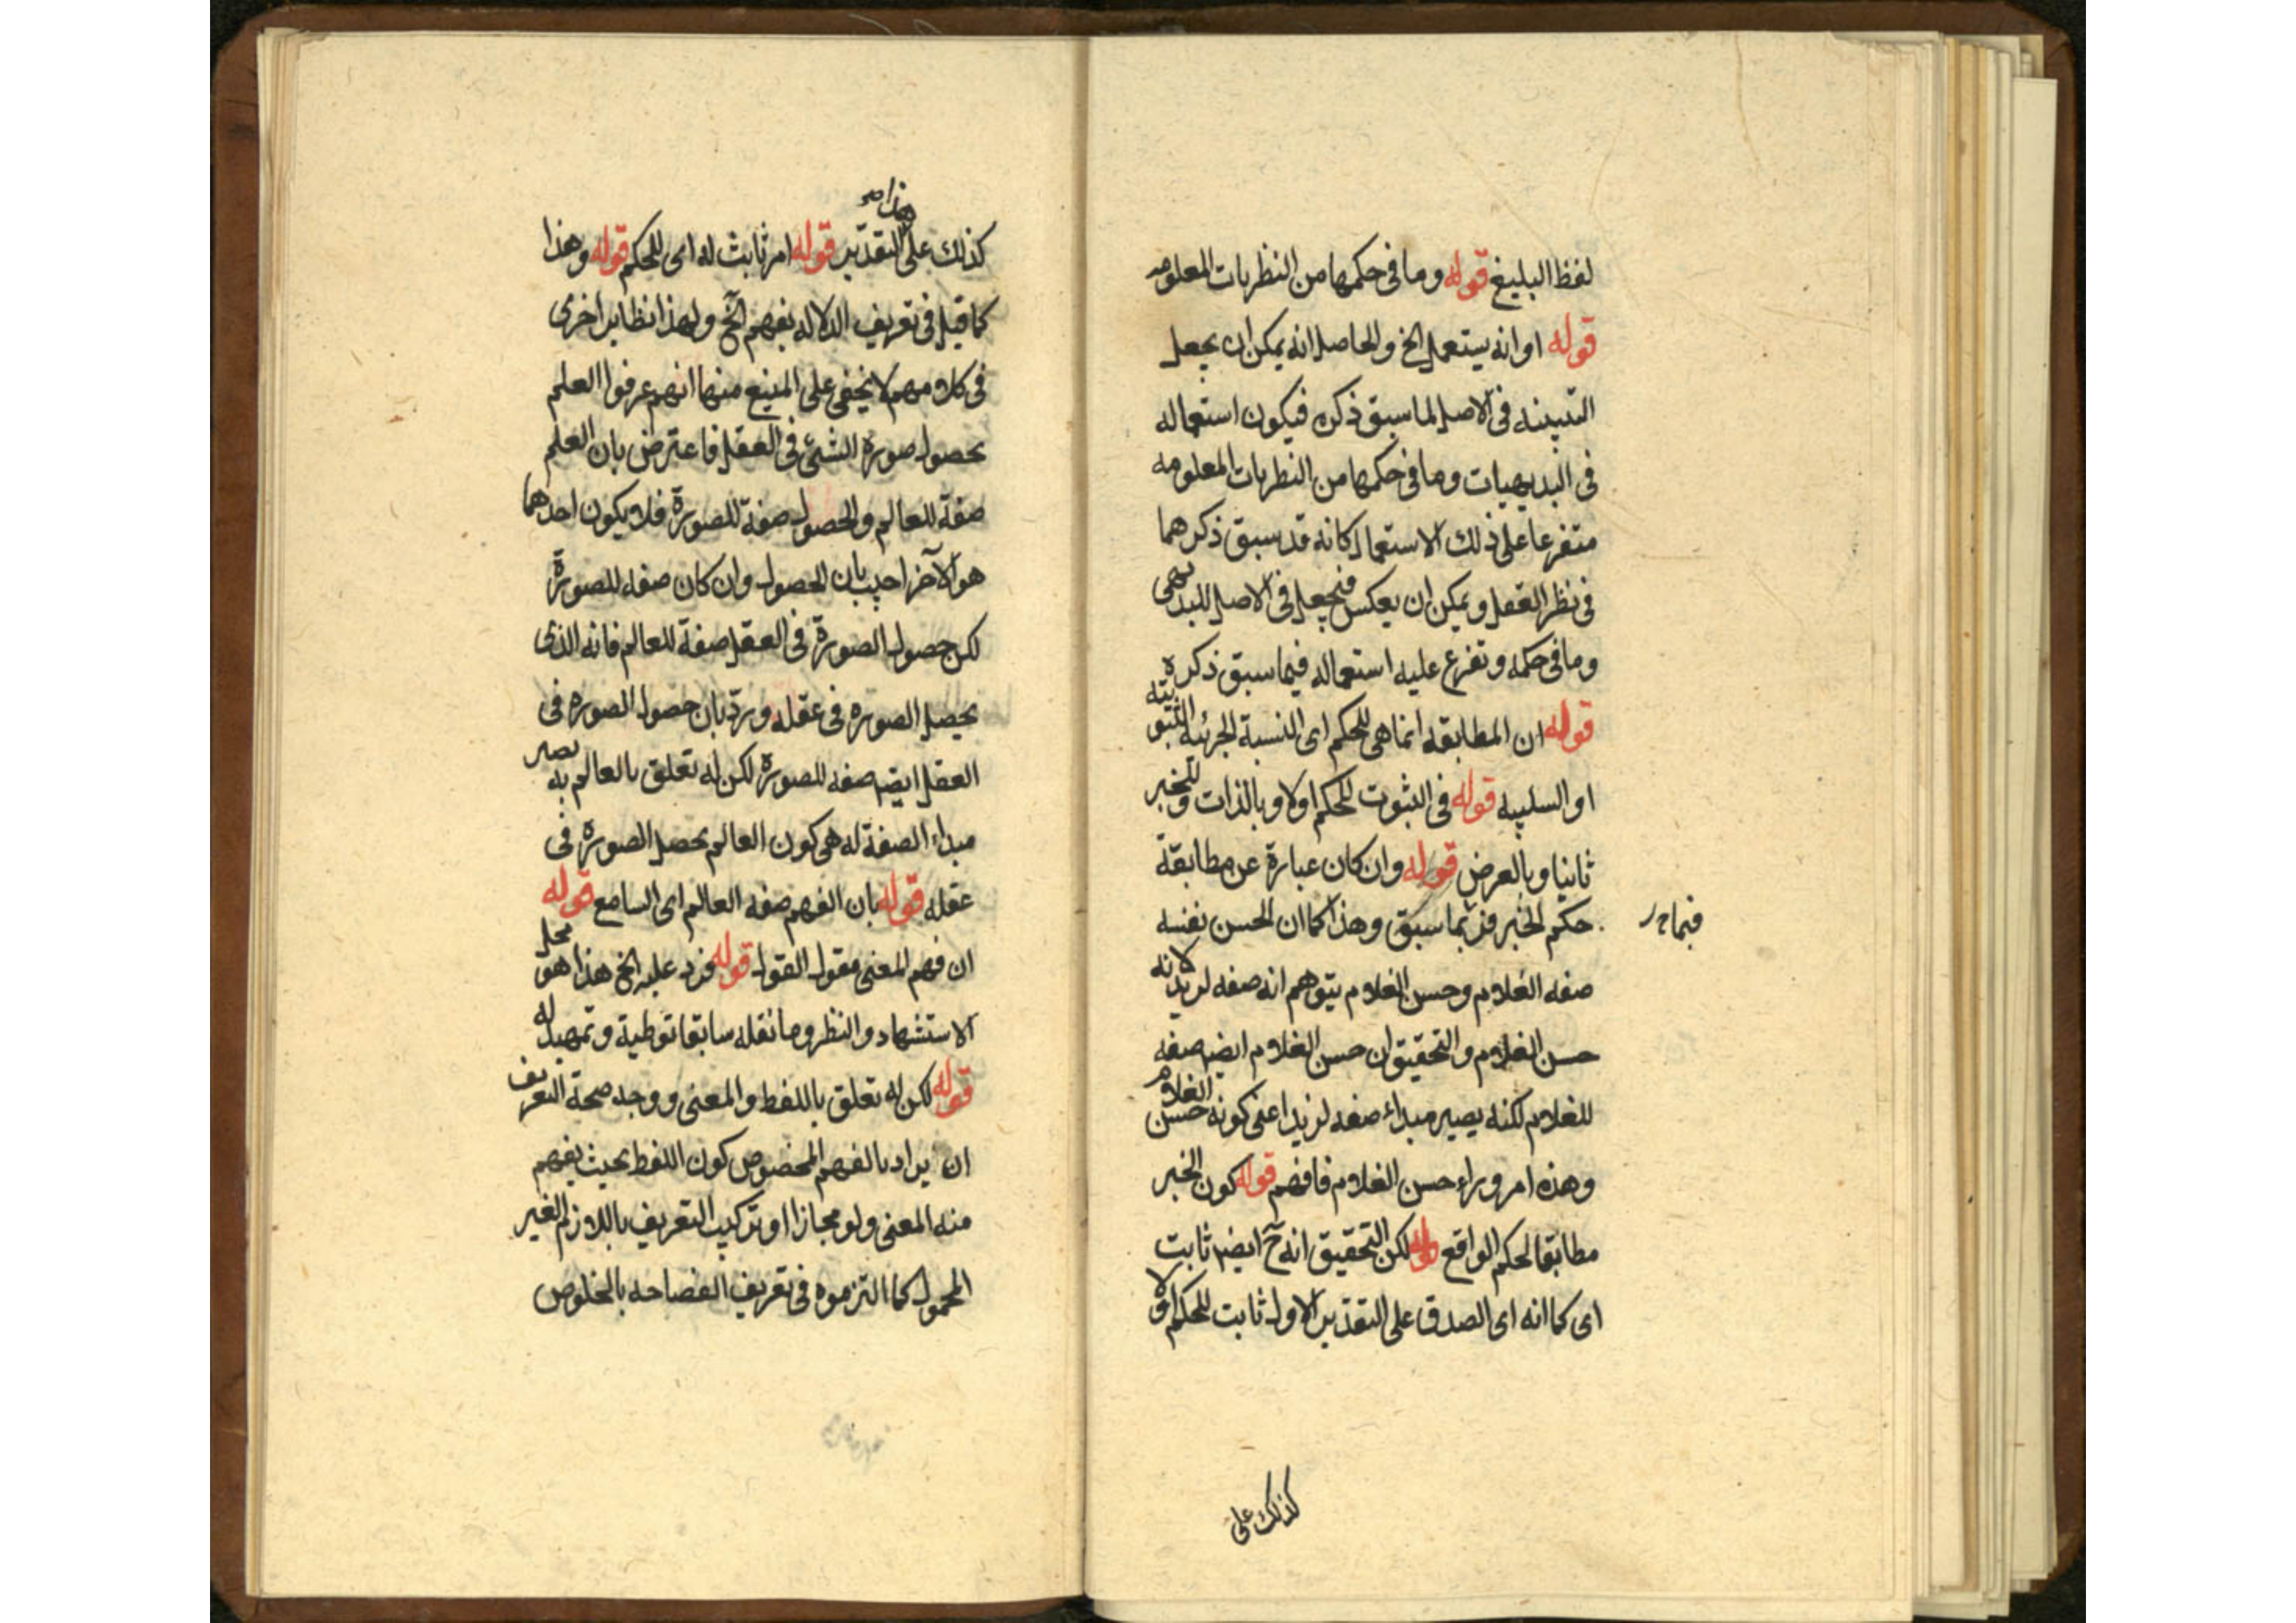 لفظ البليغ قوله وما فى حكمها من النظريات المعلومه
قوله او انه يستعمل الخ والحاصل انه يمكن ان يجعل
فى الاصل لما سبق ذكره فيكون استعماله
فى البديهيات وما فى حكمها من النظريات المعلومه
متفرعا على ذلك الاستعمال كانه قد سبق ذكرهما
فى نظر العقل ويمكن ان يعكس فيجعل فى الاصل للبديهى
وما فى حكمه وتفرع عليه استعماله فيما سبق ذكره
قوله ان المطابقه انما هى للحكم اى النسبة الجزئيه الثبوتيته
او السلبيه قوله فى الثبوت للحكم اولا وبالذات وللخبر
ثانيا وبالعرض قوله وان كان عبارة عن مطابقة
حكم الخبر سبق وهذا كما ان الحسن نفسه
صفه الغلام وحسن الغلام يتوهم انه صفه لزيد لانه
حسن الغلام والتحقيق ان حسن الغلام ايضا صفه
للغلام لكنه يصير مبداء صفه لزيد اعنى كونه حسن الغلام
وهذه امر وراء حسن الغلام فافهم قوله كون الخبر
مطابقا لحكم الواقع قوله لكن التحقيق انه ح ايضا ثابت
اى كما انه اى الصدق على التقدير الاول ثابت للحكم اولا
كذلك على
كذلك على التقدير قوله امر ثابت له اى للحكم قوله وهذا
كما قيل فى تعريف الدلاله بفهم الخ ولهذا نظاير اخرى
فى كلامهم لا يخفى على منها انهم عرفوا العلم
بحصول صورة الشئ فى العقل فاعترض بان العلم
صفة للعالم والحصول صفة للصورة فلا يكون احدهما
هو الآخر اجيب بان الحصول وان كان صفه للصورة
لكن حصول الصورة فى العقل صفة للعالم فانه الذى
يحصل الصوره فى عقله ورد بان حصول الصوره فى
العقل ايضا صفه للصورة لكن له تعلق بالعالم به يصير
مبداء الصفة له هى كون العالم يحصل الصورة فى
عقله قوله بان الفهم صفه العالم اى السامع قوله
ان فهم المعنى مقول القول قوله فرد عليه الخ هذا هو محل
الاستشهاد والنظر وما نقله سابقا توطية وتمهيد له
قوله لكن له تعلق باللفظ والمعنى ووجه صحة التعريف
ان يراد بالفهم المخصوص كون اللفظ بحيث يفهم
منه المعنى ولو مجازا او تركيب التعريف باللازم الغير
المحمول كما التزموه فى تعريف الفصاحه بالخلوص